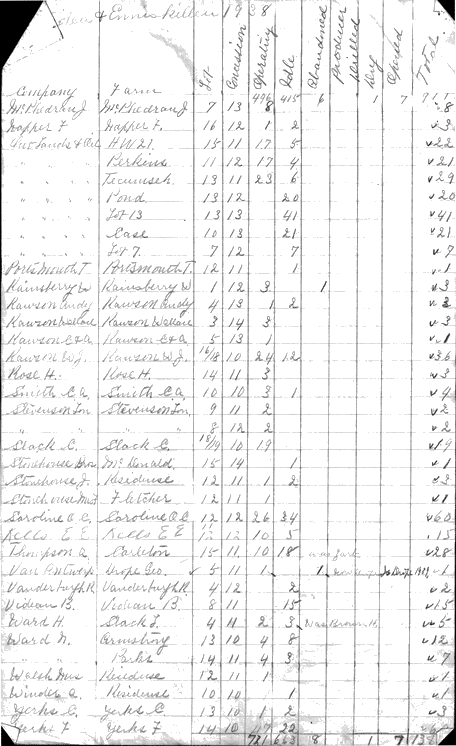 & Enniskillen 1938
Company Farm Lot Concession Operating Idle Abandoned Producer Drilled Dry Opened Total
496 415 6 1 7
McPhedran J McPhedran J 7 13 8 8
Happer F Happer F. 16 12 1 2 3
H W 21. 15 11 17 5 22
" " " " Perkins 11 12 17 4 21
" " " " Tecumseh 13 11 23 6 29
" " " " Pond 13 12 20 20
" " " " Lot 13 13 13 41 41
" " " " Case 10 13 21 21
" " " " Lot 7. 7 12 7 7
Portsmouth T Portsmouth T. 12 11 1 1
Rainsberry W Rainsberry W 1 12 3 1 3
Rawson Andy Rawson Andy 4 13 1 2 3
Rawson Wallace Rawson Wallace 3 14 3 3
Rawson C & A Rawson C & A 5 13 1 1
Rawson W J. Rawson W J. 16/18 10 24 12 36
Rose H. Rose H. 14 11 3 3
Smith C A. Smith C A 10 10 3 1 4
Stevenson Stevenson 9 11 2 2
" " 8 12 2 2
Slack C. Slack C. 18/19 10 19 19
Stonehouse Bros McDonald. 15 14 1 1
Stonehouse J. Residense 12 11 1 2 3
Stonehouse Fletcher 12 11 1 1
Saroline O C. Saroline O C 12 12 26 34 60
Kells E E Kells E E 12 12 10 5 15
Thompson A. Carleton 15 11 10 18 28
Van Antwerp Drope Geo. 5 11 1 1 1
Vanderburgh R Vanderburgh R. 4 12 2 2
Videan B. Videan B. 8 11 15 15
Ward H. Slack L. 4 11 2 3 Was Brown H. 5
Ward N. Armstrong 13 10 4 8 12
Parks 14 11 4 3 7
Walsh Mrs Residense 12 11 1 1
Winder A. Residense 10 10 1 1
Yerks C. Yerks C 13 10 1 2 3
Yerks F Yerks F 14 10 17 22
731 663 8 1 7